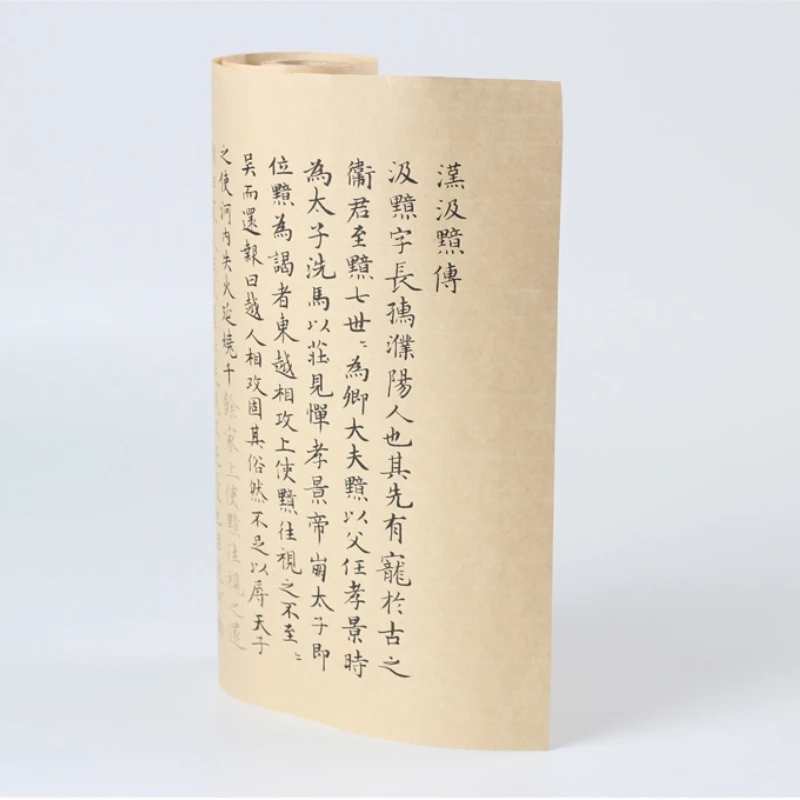 漢汲黯傳
汲黯字長孺濮陽人也其先有寵於古之
衞君至黯七世〻為卿大夫黯以父任孝景時
為太子洗馬以莊見憚孝景帝崩太子即
位黯為謁者東越相攻上使黯往視之不至〻
吳而還報曰越人相攻固其俗然不足以辱天子
之使河内失火延燒千餘家上使黯往視之還